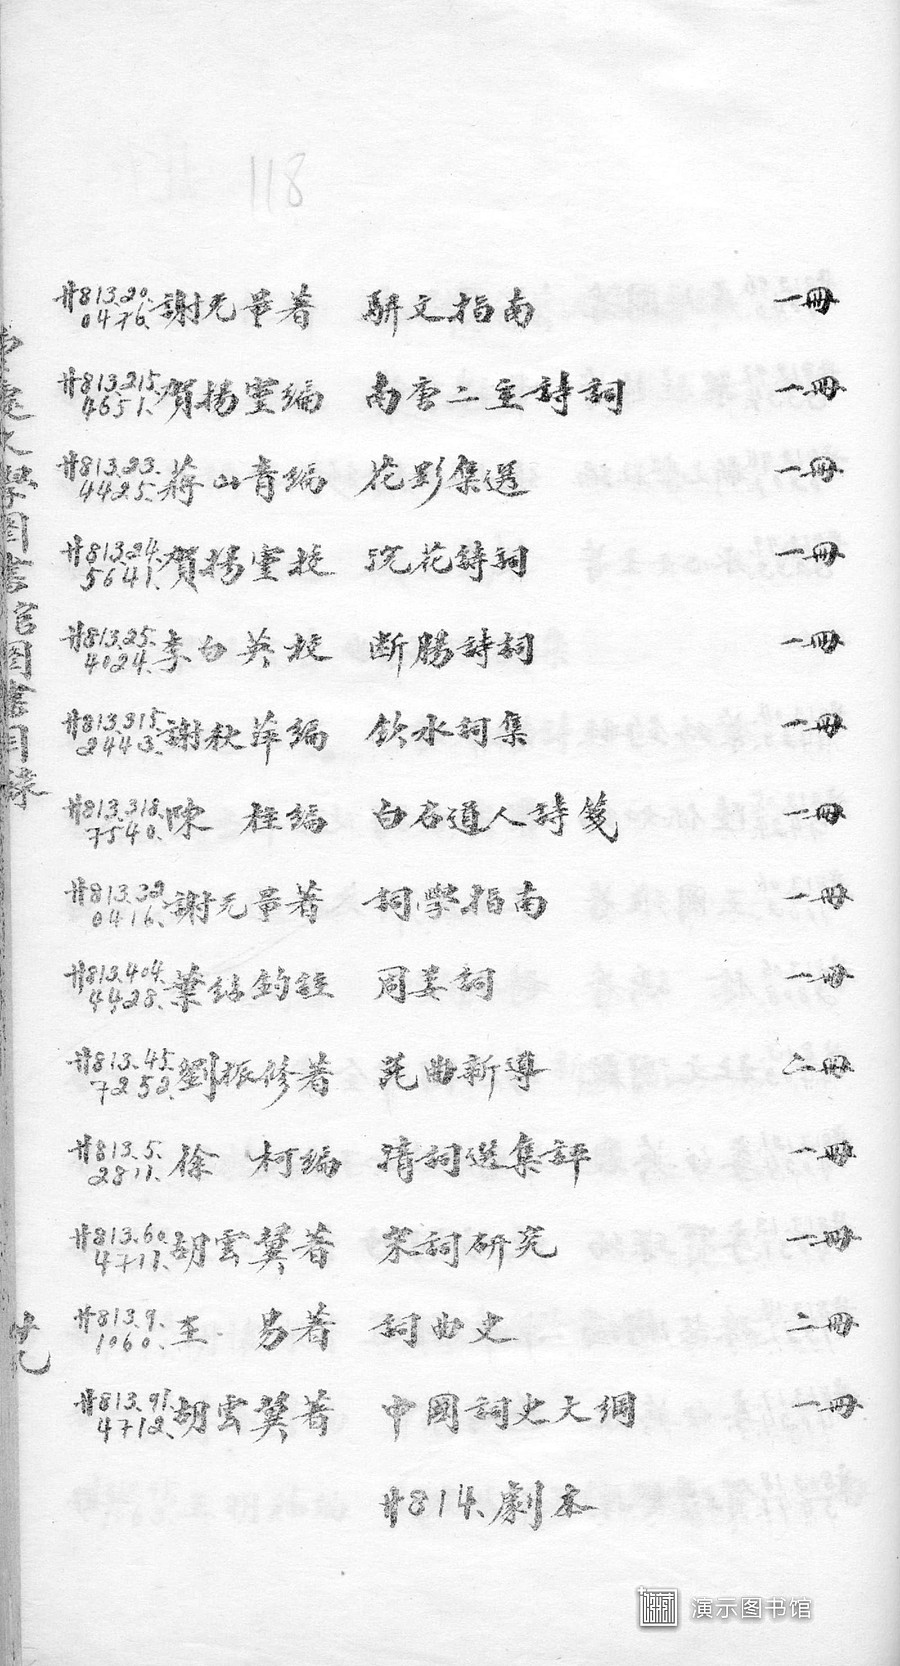 118
廿813.20. 0476. 謝无量著 駢文指南 一冊
廿813.215 4651. 賀揚靈編 南唐二主詩詞 一冊
廿813.23. 4425. 蔣山青編 花影集選 一冊
廿813.24. 5641. 賀揚靈校 浣花詩詞 一冊
廿813.25. 4024. 李白英校 断腸詩詞 一冊
廿813.315. 2443. 謝秋萍編 飲水詞集 一冊
廿813.318. 7540. 陳 柱編 白石道人詩箋 一冊
廿813.32 0416. 謝无量著 詞學指南 一冊
廿813.404. 4428. 葉紹鈞註 周姜詞 一冊
廿813.45. 7252. 劉振修著 昆曲新導 二冊
廿813.5. 2811. 徐 柯編 清詞選集評 一冊
廿813.60. 4711. 胡雲翼著 宋詞研究 一冊
廿813.9. 1060. 王 易著 詞曲史 二冊
廿813.91. 4712. 胡雲翼著 中國詞史大綱 一冊
廿814、劇本
文學圖書館圖書目録
演示图书馆